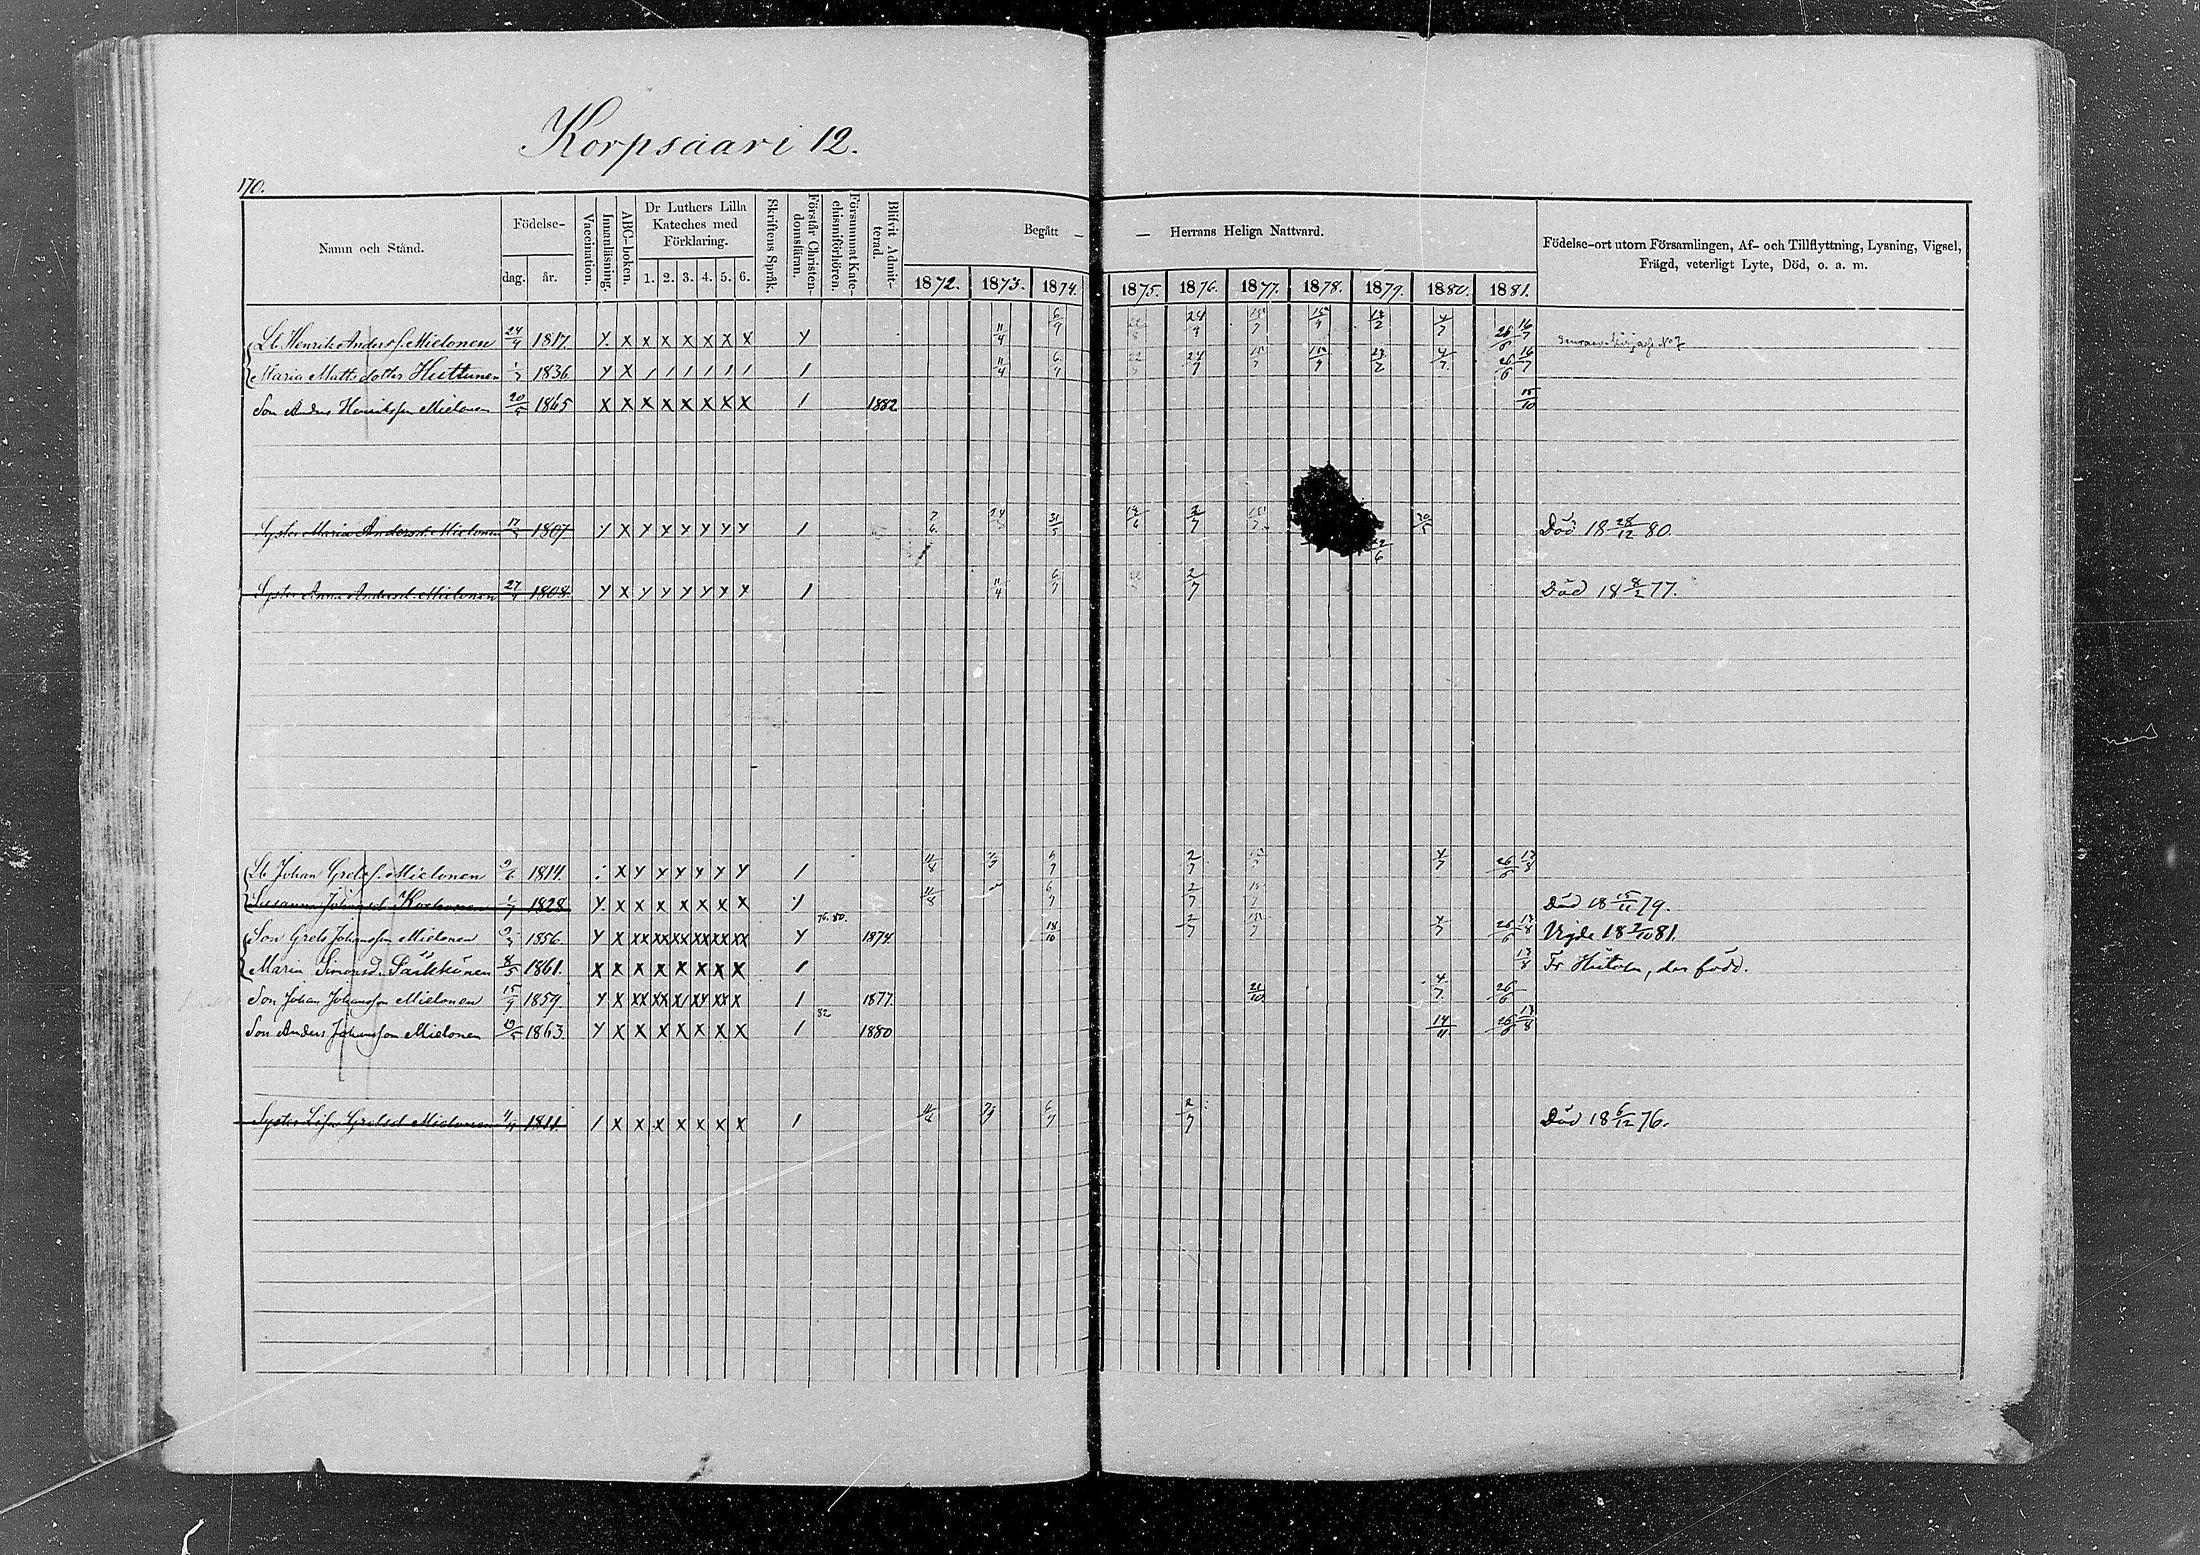 Korpsaari 12.
170.
Namn och Stånd.
Födelse-
dag. år.
Vaccination.
Innanläsning.
ABC-boken.
Dr Luthers Lilla
Kateches med
Förklaring.
1. 2. 3. 4. 5. 6.
Skriftens Språk.
Förstår Christen-
domsläran.
Försummat Kate-
chismiförhören.
Blifvit Admit-
terad.
Begått — — Herrans Heliga Nattvard.
1872. 1873. 1874. 1875. 1876. 1877. 1878. 1879. 1880. 1881.
Födelse-ort utom Församlingen, Af- och Tillflyttning, Lysning, Vigsel,
Frägd, veterligt Lyte, Död, o. a. m.
Lb Henrik Anders s. Mielonen 24/9 1817. Y. X X X X X X X Y 11/4 6/9 24/9 15/7 15/9 4/7 26/6 16/7 No 7
Maria Mattsdotter Huttunen 1836. Y X / / / / / / / 11/4 6/9 24/9 4/7 26/6 16/7
Son Anders Henriksson Mielonen 20/5 1865 X X X X X X X X / 1882 15/10
Syster Maria Andersd. Mielonen 1807. Y X Y Y Y Y Y Y / 7/6 31/5 2/7 Död 18 28/12 80.
Syster Anna Andersd. Mielonen 27/9 1808. Y X Y Y Y Y Y Y / 11/4 6/9 2/7 Död 18 8/2 77.
Lb Johan Grels s. Mielonen 9/6 1814. X Y Y Y Y Y Y / 11/8 2/7 4/7 26/6 17/8
Susanna Johansd. Korhonen 1828 Y. X X X X X X X / 11/8 6/9 2/7 Död 18 15/11 79.
76. 80.
Son Grels Johansson Mielonen 1856. Y X XX XX XX XX XX XX Y 1874 18/10 2/7 4/7 26/6 Vigde 18 2/10 81.
Maria Simonsd. Sääkkönen 8/5 1861. X X X X X X X X / Fr Hiitola, der född.
Son Johan Johansson Mielonen 15/9 1859. Y X / 1877. 21/10 4/7. 26/6
82
Son Anders Johansson Mielonen 1863. Y X X X X X X X / 1880 14/11 26/6 17/8
Syster Lisa Grelsd Mielonen 1811. / X X X X X X X / 11/8 6/9 2/7 Död 18 6/12 76.